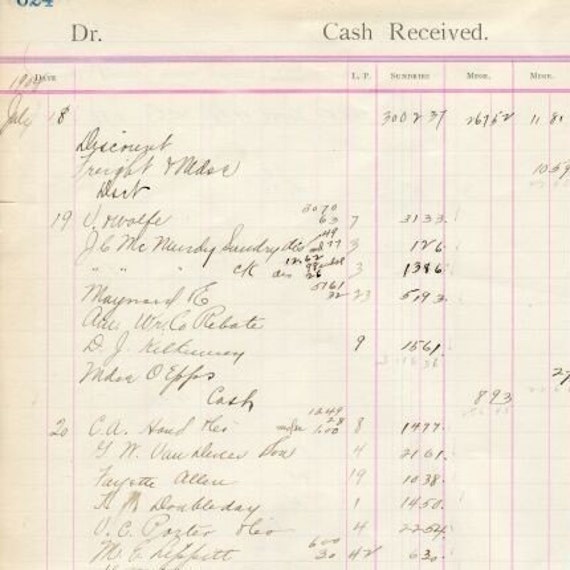 624
Dr. Cash Received.
1909
DATE L. P. SUNDRIES MDSE. MDSE.
July 18 3002 37 267 52 11 81
Discount
Freight & Mdse 10 59
Dsct
19 30 70 63 7 31 33
J. C. McNurdy Sundry dis 3 1 26
" " " ck dis 12.62 26 3 13 86
Maynard E 51 61 32 23 51 93
Am. Wr. Co Rebate
D. J. 9 15 61
Mdse O Epps 27
Cash 8 93
20 C. A. 12 49 28 1.00 8 14 77
G. W. Van Son 4 21 61
Fayette Allen 19 10 38
Doubleday 1 14 50
V. C. Porter & Co 4 22 54
M. E. Lippitt 6 00 30 42 6 30